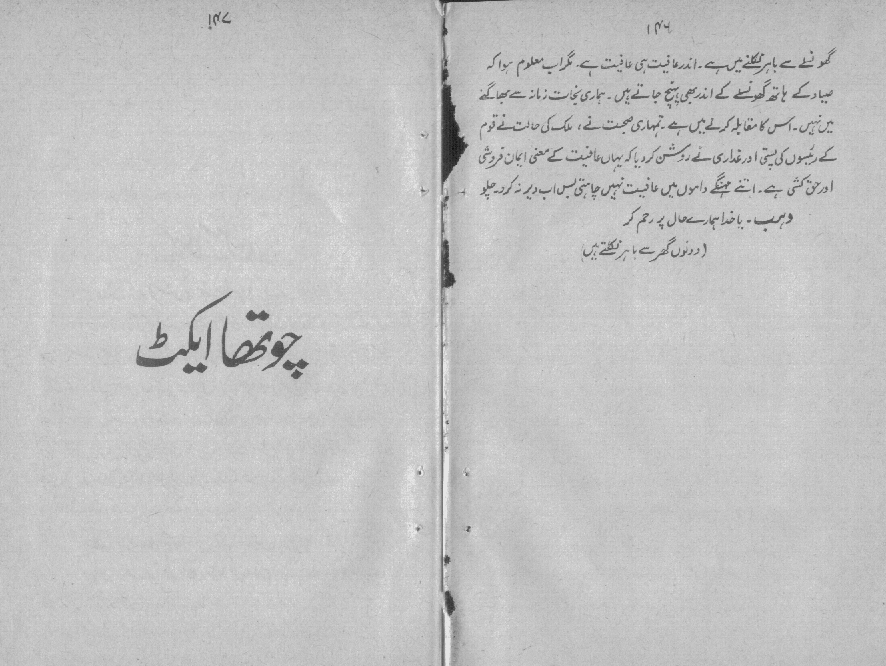 ۱۴۶
گھونسلے سے باہر نکلنے میں ہے۔ اندر عافیت ہی عافیت ہے۔ مگر اب معلوم ہوا کہ
صیاد کے ہاتھ گھونسلے کے اندر بھی پہنچ جاتے ہیں۔ ہماری نجات زمانہ سے بھاگنے
میں نہیں۔ اس کا مقابلہ کرنے میں ہے۔ تمہاری صحبت نے، ملک کی حالت نے قوم
کے رئیسوں کی پستی اور غداری نے روشن کر دیا کہ یہاں عافیت کے معنی ایمان فروشی
اور حق کشی ہے۔ اتنے مہنگے داموں میں عافیت نہیں چاہتی بس اب دیر نہ کرو۔ چلو
وہب۔ یا خدا ہمارے حال پر رحم کر
(دونوں گھر سے باہر نکلتے ہیں)
۱۴۷
چوتھا ایکٹ